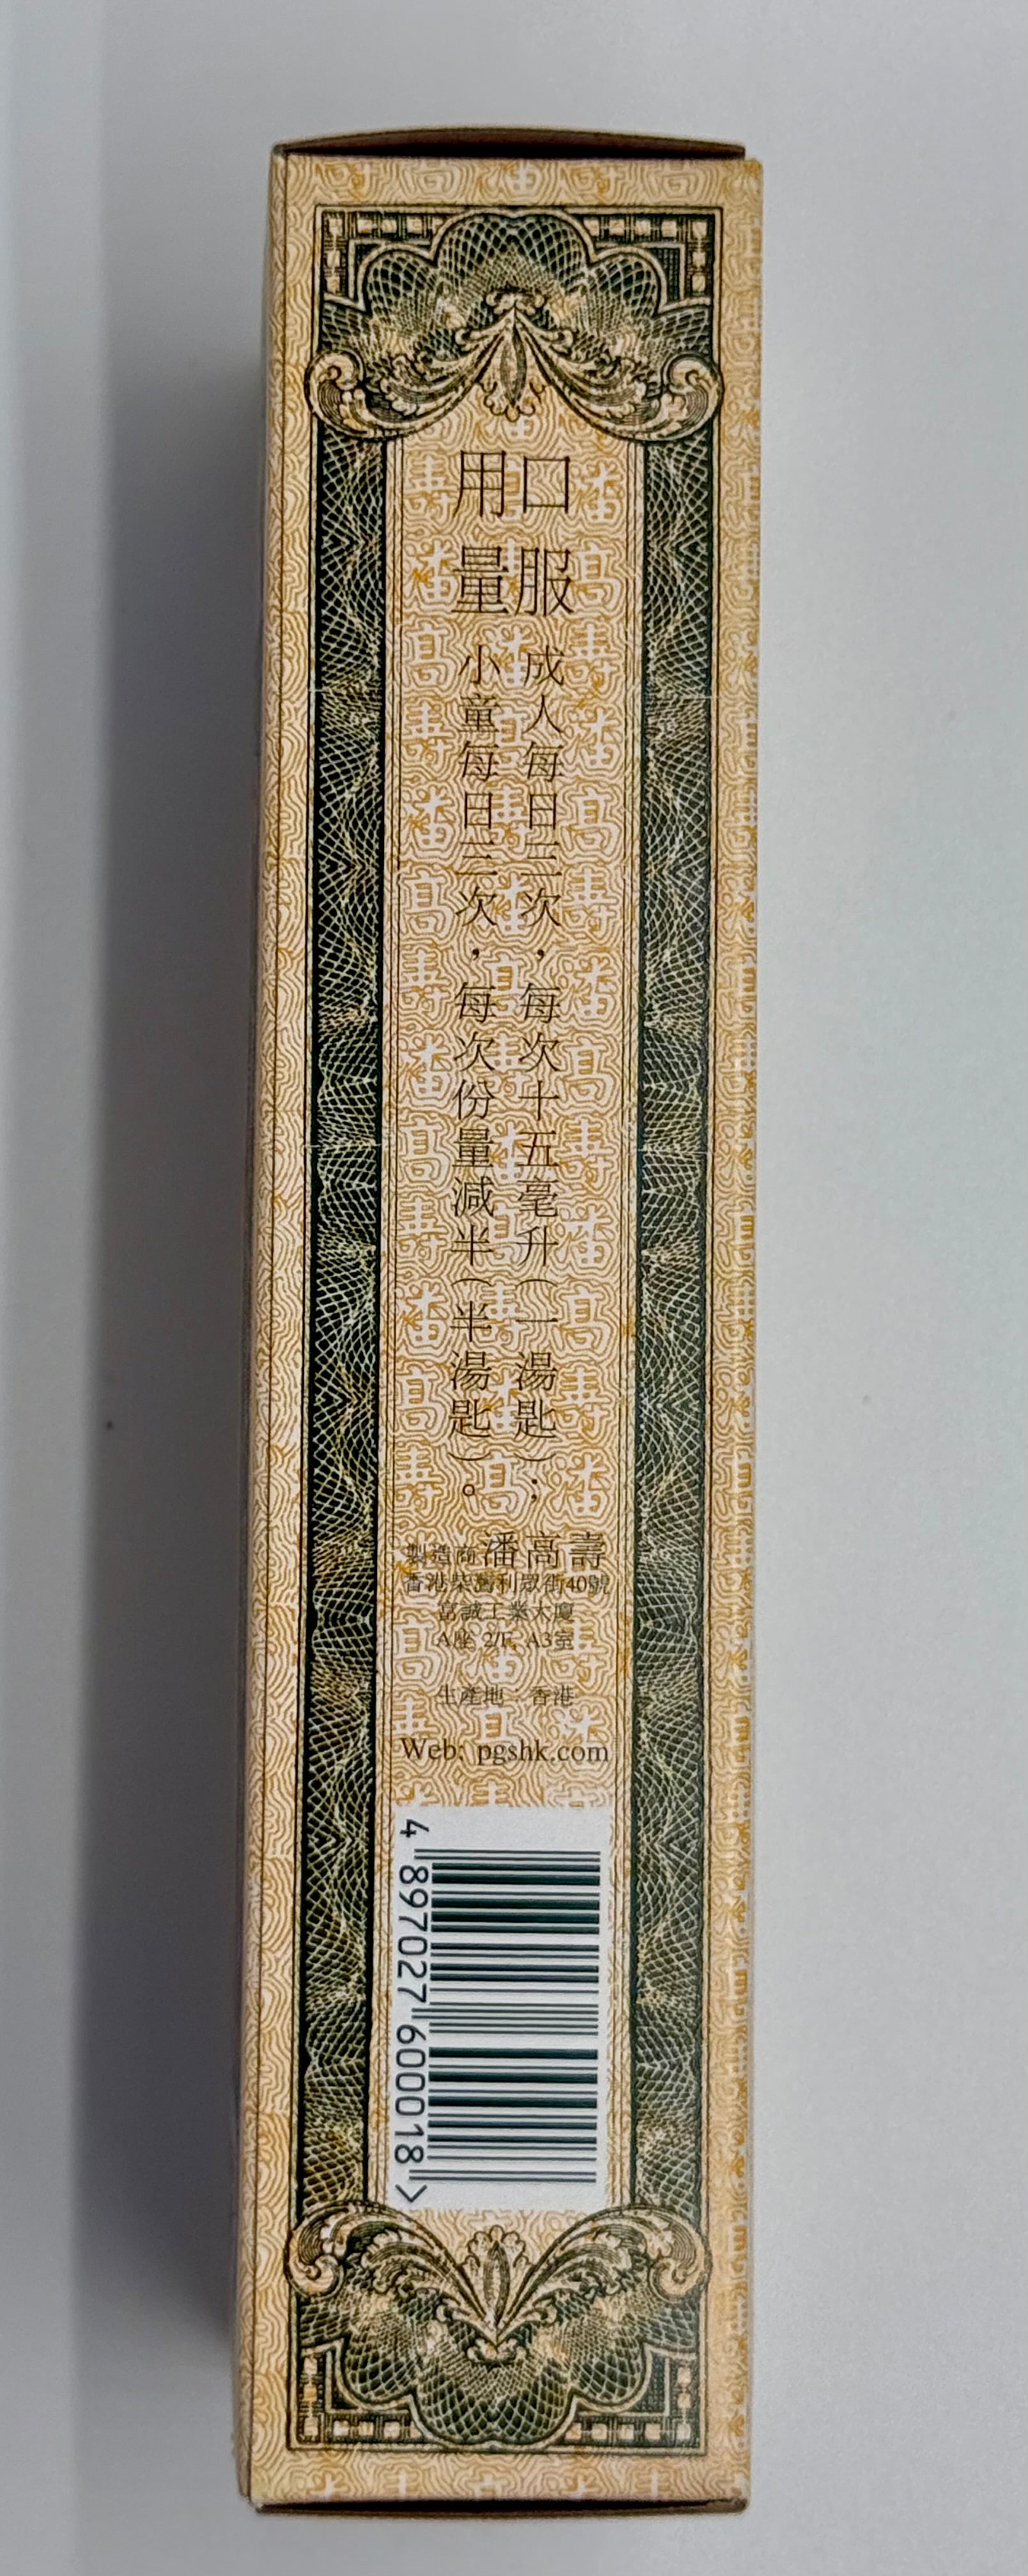 口服用量
成人每日三次，每次十五毫升（一湯匙）；
小童每日三次，每次份量減半（半湯匙）。
製造商 潘高壽
香港柴灣利眾街40號
富誠工業大廈
A座 2/F, A3室
生產地：香港
Web: pgshk.com
4 897027 600018 >